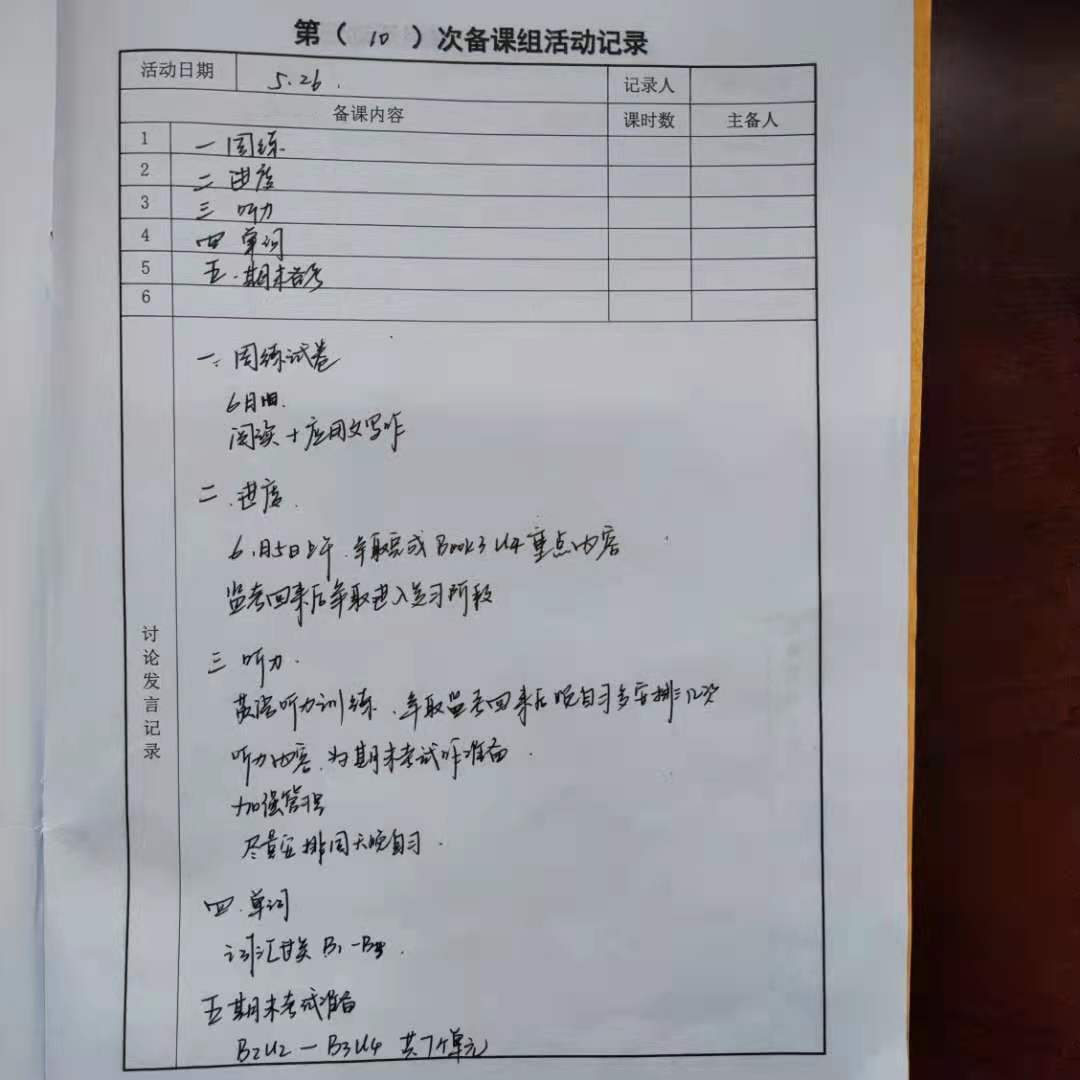 第（ 10 ）次备课组活动记录
活动日期 5.26. 记录人
备课内容 课时数 主备人
1 一 周练
2 二 进度
3 三 听力
4 四 单词
5 五.期末备考
6
讨论发言记录
一、周练试卷
6月
阅读+应用文写作
二.进度.
6月5日上午.争取完成Book3 U4重点内容
监考回来后争取进入复习阶段
三 听力.
英语听力训练.争取监考回来后晚自习多安排几次
听力内容.为期末考试作准备.
加强管理
尽量安排周天晚自习.
四.单词
词汇 B1-B3.
五 期末考试准备
B2U2 — B3U4 共7个单元